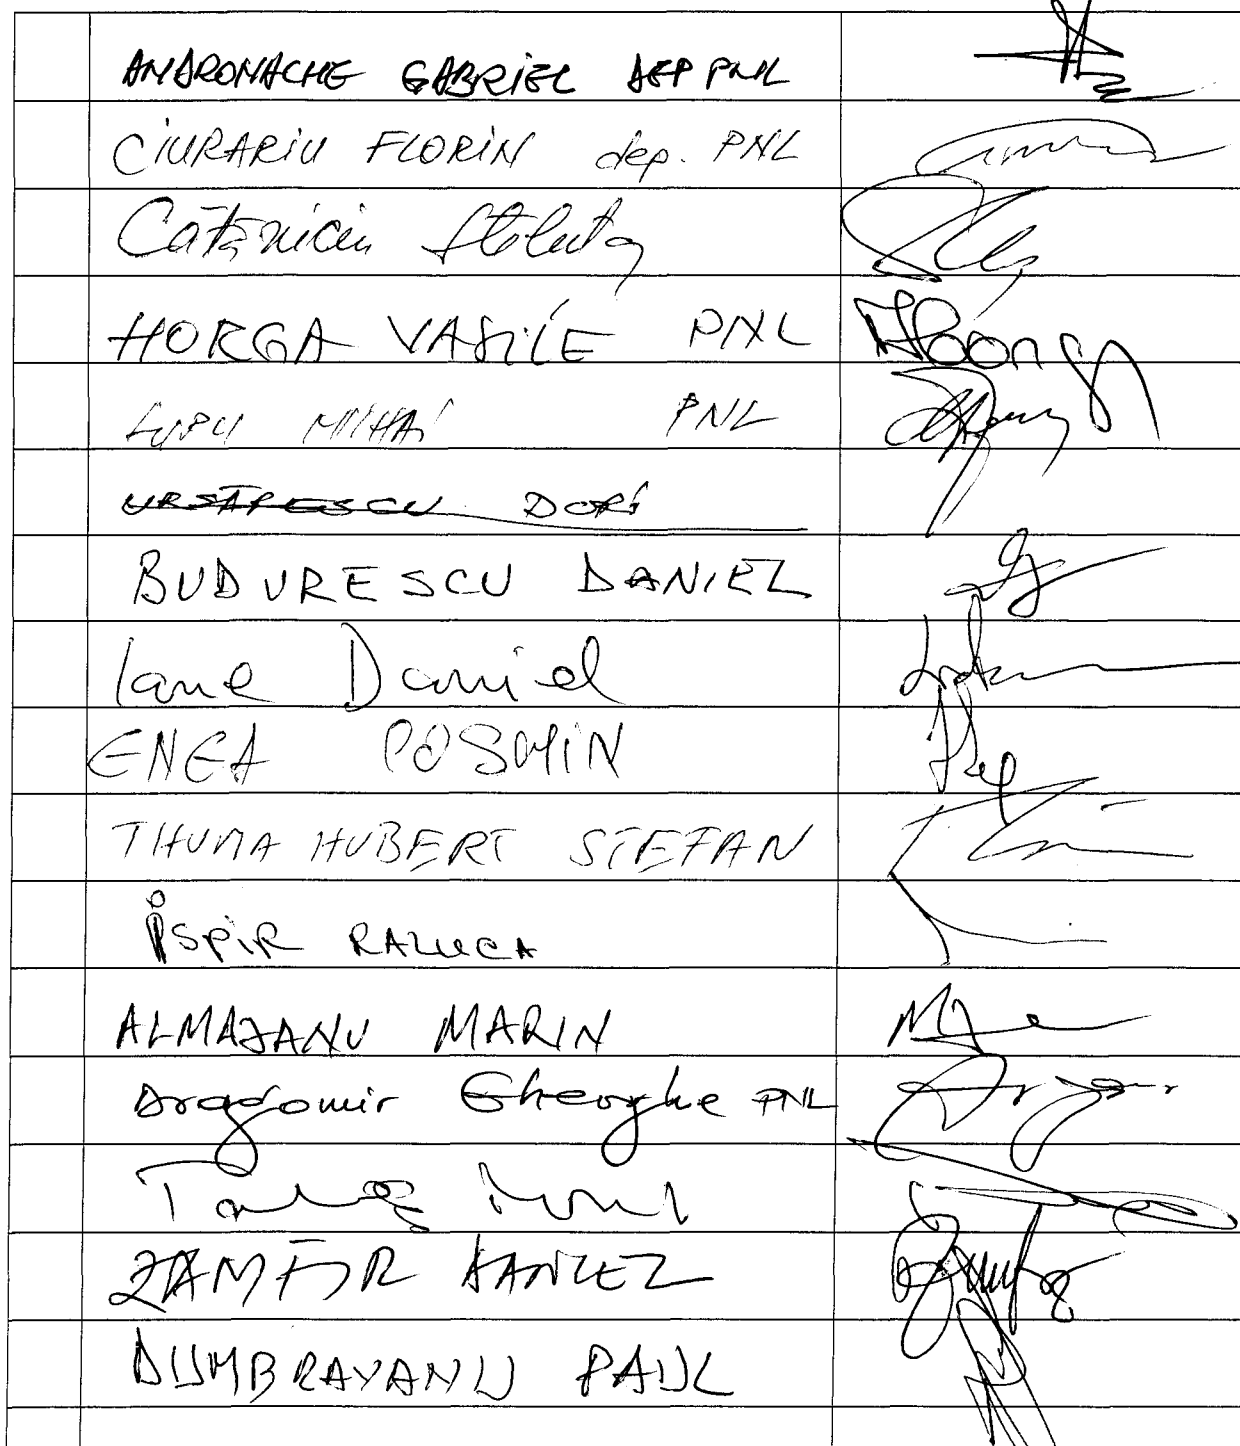 ANDRONACHE GABRIEL DEP PNL
CIURARIU FLORIN dep. PNL
Cătăniciu Steluța
HORGA VASILE PNL
LUPU MIHAI PNL
URSĂRESCU DORI
BUDURESCU DANIEL
Iane Daniel
ENEA COSMIN
THUMA HUBERT STEFAN
ISPIR RALUCA
ALMAJANU MARIN
Dragomir Gheorghe PNL
ZAMFIR DANIEL
DUMBRAVANU PAUL